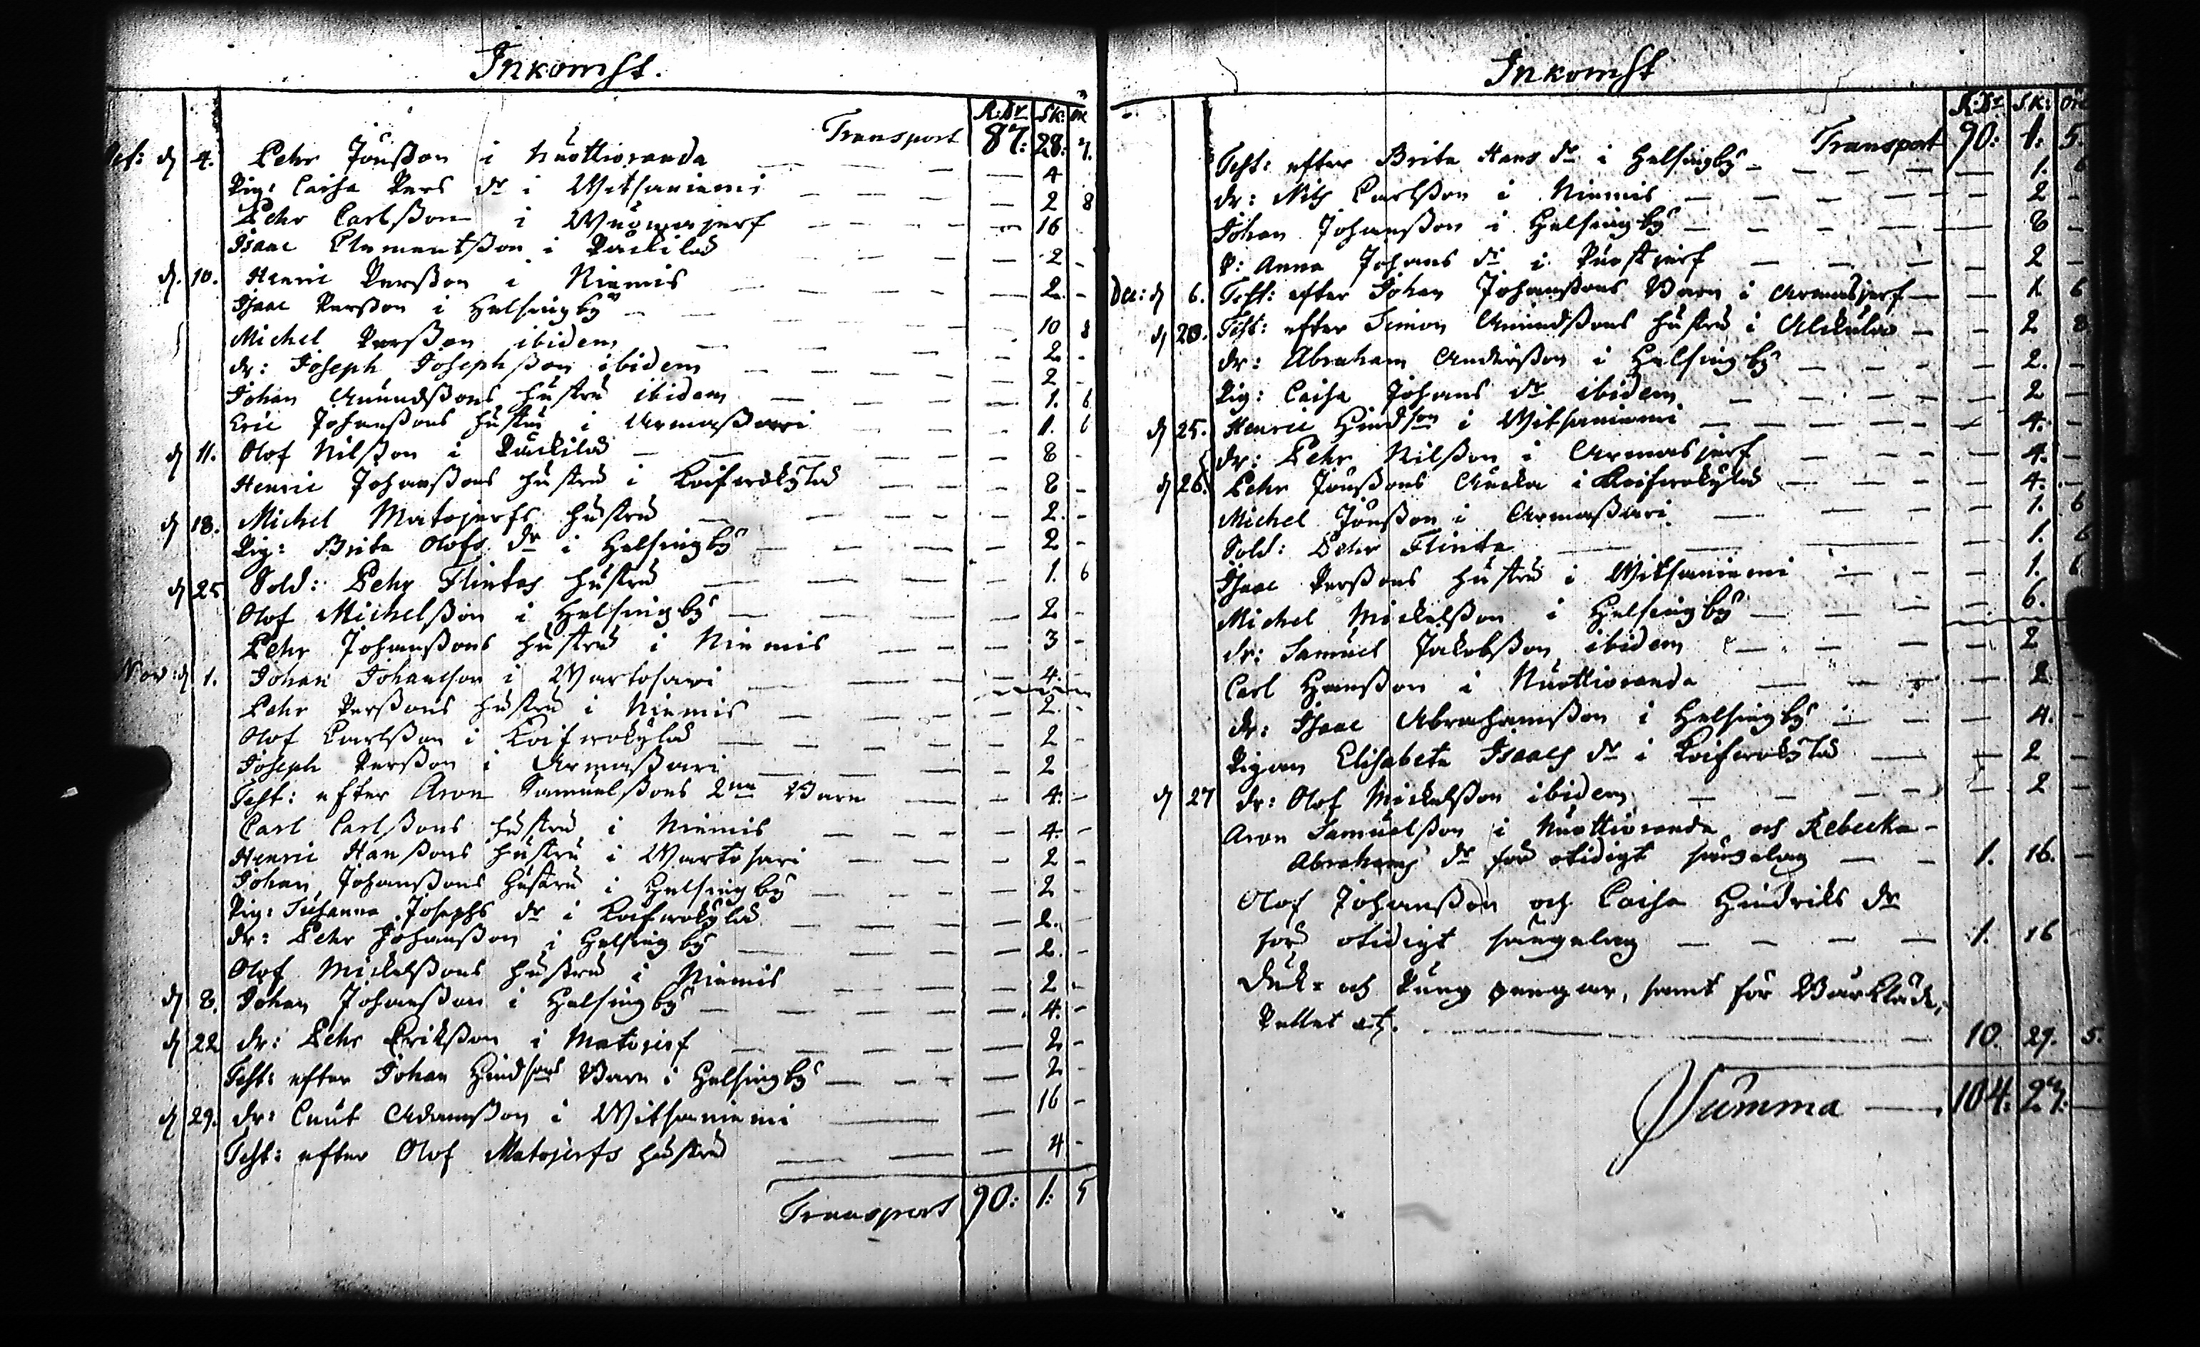 Inkomst.
R:dr Sk: ör
Transport 87: 28: 7.
Oct: d 4. Pehr Jönsson i Nuottioranda — 4
Pig: Caisa Pers dr i Witsaniemi — 2 8
Pehr Carlsson i Wuomajerf — 16
Isaac Clementsson i Packila — 2 -
d. 10. Henric Persson i Niemis — 2. -
Isaac Persson i Helsingby — 10 8
Michel Persson ibidem — 2 -
dr: Joseph Josephsson ibidem — 2 -
Johan Amundssons hustru ibidem — 1. 6
Eric Johanssons hustru i Armassari — 1. 6
d 11. Olof Nilsson i Packila — 8 -
Henric Johanssons hustru i Koifwokylä — 8 -
d 18. Michel Matojerfs hustru — 2. -
Pig: Brita Olofs dr i Helsingby — 2 -
d 25 Sold: Pehr Flintas hustru — 1. 6
Olof Michelsson i Helsingby — 2 -
Pehr Johanssons hustru i Niemis — 3 -
Nov: d 1. Johan Johansson i Wartosari — 4. -
Pehr Perssons hustru i Niemis — 2. -
Olof Carlsson i Koifwokylä — 2 -
Joseph Persson i Armassari — 2 -
Test: efter Aron Samuelssons 2ne Barn — 4. -
Carl Carlssons hustru i Niemis — 4. -
Henric Hanssons hustru i Wartosari — 2 -
Johan Johanssons hustru i Helsingby — 2 -
Pig: Susanna Josephs dr i Koifwokylä — 2. -
dr: Pehr Johansson i Helsingby — 2. -
Olof Mickelssons hustru i Niemis — 2 -
d 8. Johan Johansson i Helsingby — 4. -
d 22 dr: Pehr Eriksson i Matojerf — 2 -
Test: efter Johan Hindsons Barn i Helsingby — 2 -
d 29. dr: Cnut Adamsson i Witsaniemi — 16 -
Test: efter Olof Matojerfs hustru — 4 -
Transport 90: 1: 5
Inkomst
R:dr Sk: öre
Transport 90: 1: 5.
Test: efter Brita Hans dr i Helsingby — 1. 6
dr: Nils Carlsson i Niemis — 2 -
Johan Johansson i Helsingby — 8 -
P: Anna Johans dr i Puostijerf — 2 -
Dec: d 6. Test: efter Johan Johanssons Barn i Armasjerf — 1 6
d 20. Test: efter Simon Amundssons hustru i Alckula — 2 8
dr: Abraham Andersson i Helsingby — 2. -
Pig: Caisa Johans dr ibidem — 2 -
d 25. Henric Hindson i Witsaniemi — 4. -
dr: Pehr Nilsson i Armasjerf — 4. -
d 26. Pehr Jönssons Encka i Koifwokylä — 4. -
Michel Jönsson i Armassari — 1. 6
Sold: Pehr Flinta — 1. 6
Isaac Perssons hustru i Witsaniemi — 1. 6
Michel Mickelsson i Helsingby — 6.
dr: Samuel Jakobsson ibidem — 2
Carl Hansson i Nuottioranda — 2
dr: Isaac Abrahamsson i Helsingby — 4. -
Pigan Elisabeta Isaacs dr i Koifwokylä — 2 -
d 27 dr: Olof Mickelsson ibidem — 2 -
Aron Samuelsson i Nuottioranda och Rebecka
Abrahams dr för otidigt sängelag — 1. 16. -
Olof Johansson och Caisa Hindriks dr
för otidigt sängelag — 1. 16
och Pung pengar, samt för Bårkläde,
10. 29. 5.
Summa — 104: 27: —